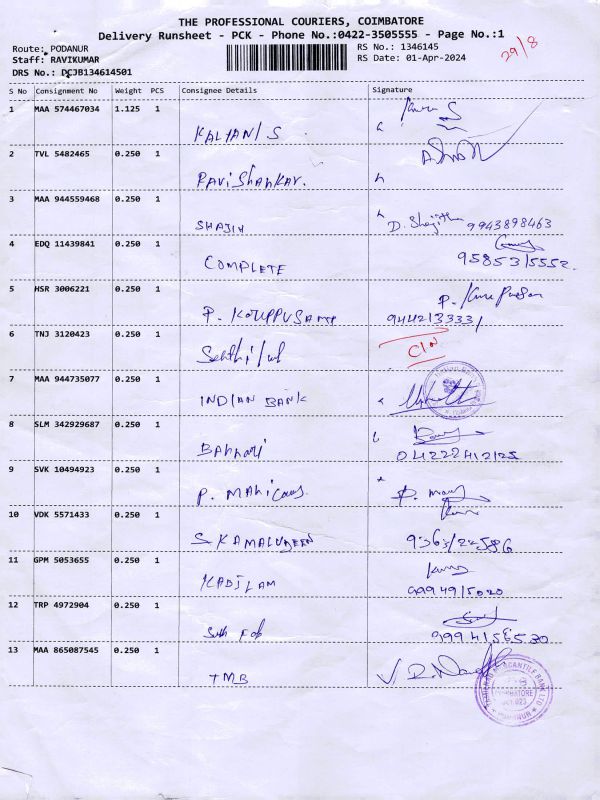 THE PROFESSIONAL COURIERS, COIMBATORE
Delivery Runsheet - PCK - Phone No.:0422-3505555 - Page No.:1
Route: PODANUR RS No.: 1346145 29/8
Staff: RAVIKUMAR RS Date: 01-Apr-2024
DRS No.: DCJB134614501
S No Consignment No Weight PCS Consignee Details Signature
1 MAA 574467034 1.125 1
KALYANI S
2 TVL 5482465 0.250 1
RAVI Shankar.
3 MAA 944559468 0.250 1
SHAJIH D. Shajitha 9943898463
4 EDQ 11439841 0.250 1
COMPLETE 9585315552.
5 HSR 3006221 0.250 1
P. KORUPPUSAMY 9442133331
6 TNJ 3120423 0.250 1
7 MAA 944735077 0.250 1
INDIAN BANK
8 SLM 342929687 0.250 1
Bannari 04222412125
9 SVK 10494923 0.250 1
P.
10 VDK 5571433 0.250 1
S. KAMALUDEEN
11 GPM 5053655 0.250 1
KADILAM 9994915020
12 TRP 4972904 0.250 1
13 MAA 865087545 0.250 1
TMB